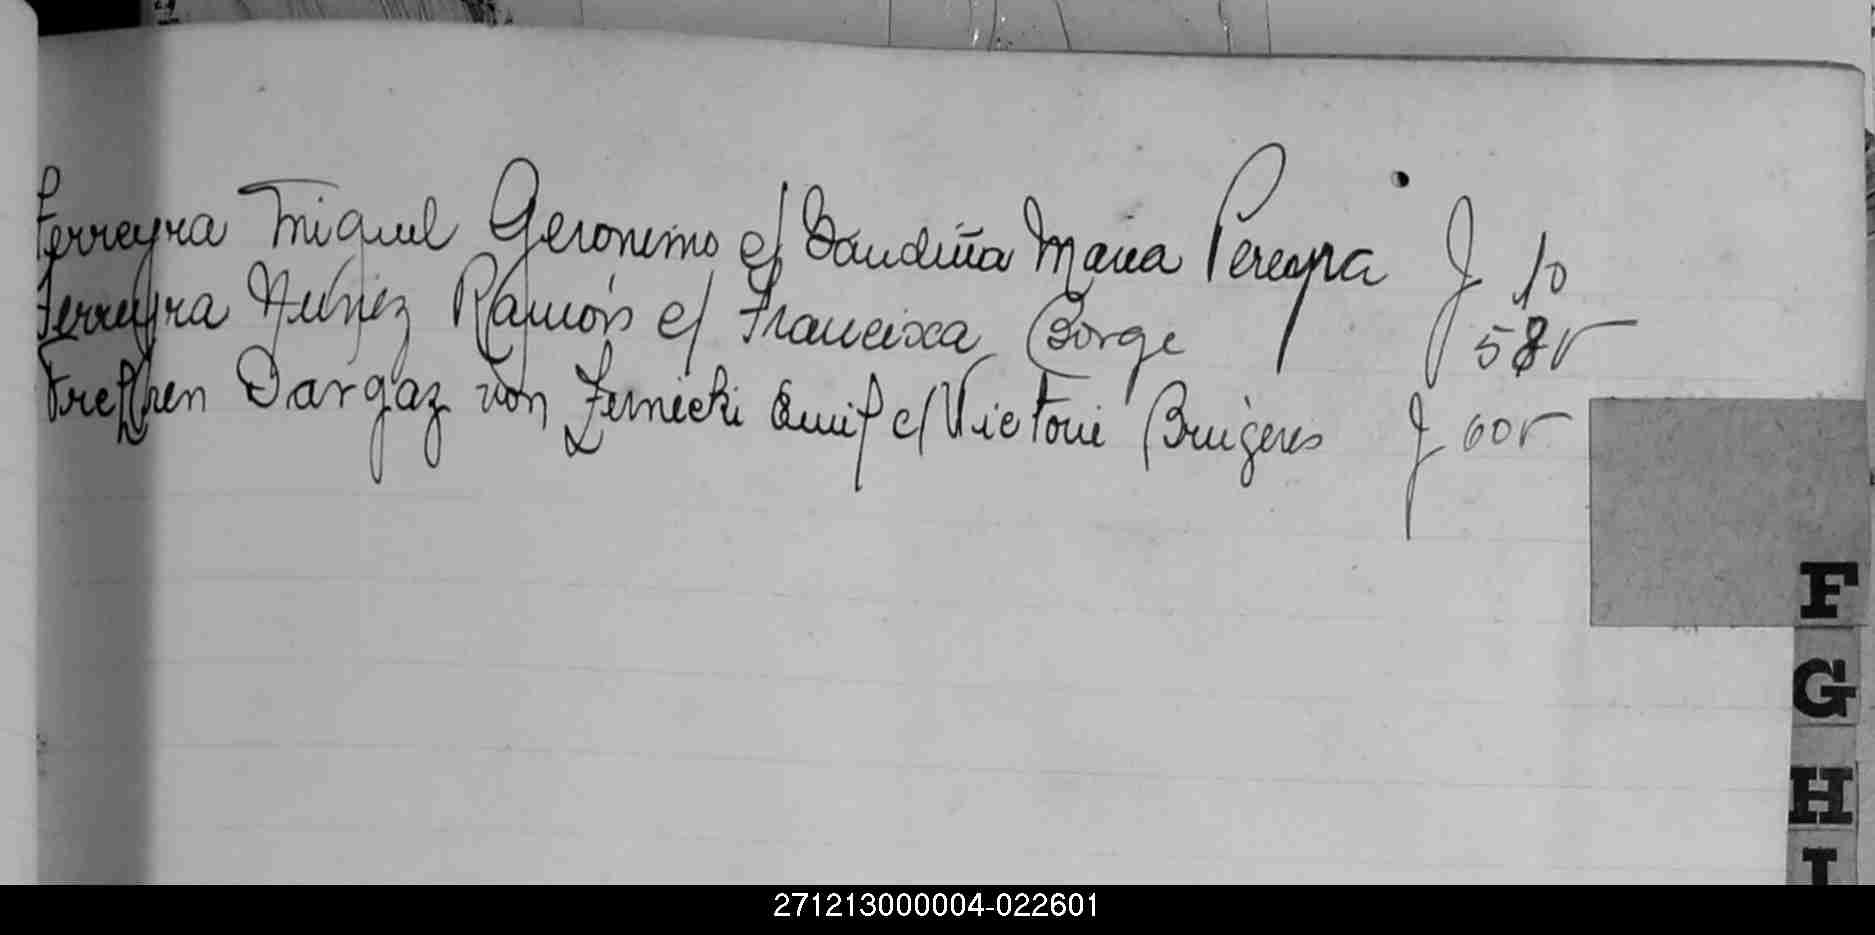 Ferreyra Miguel Geronimo c/ Maria Pereyra J 10
Ferreyra Nuñez Ramón c/ Francisca Borge 58v
Dargaz von Zernicki Emil c/ Victori Brugeres J 60v
F
G
H
I
271213000004-022601